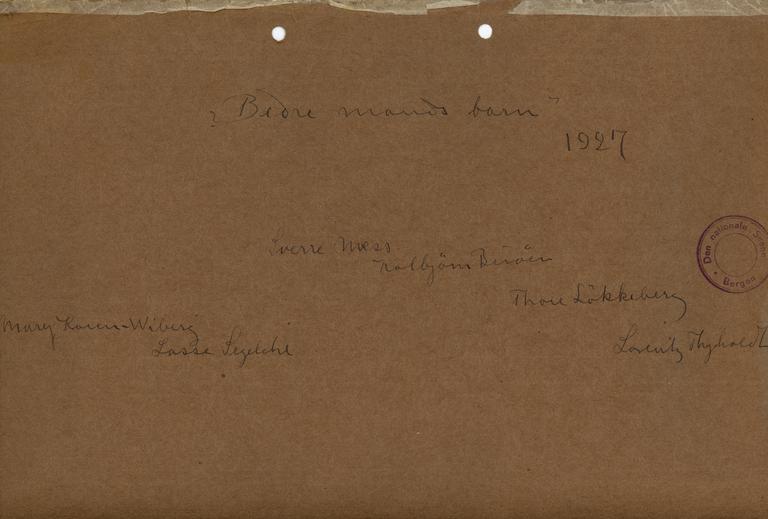 "Bedre mands barn"
1927
Sverre Mess
Kolbjörn Buöen
Thore Lökkeberg
Mary Koren-Wiberg
Lasse Segelcke
Lorentz Thyholdt
Den nationale Scene
Bergen